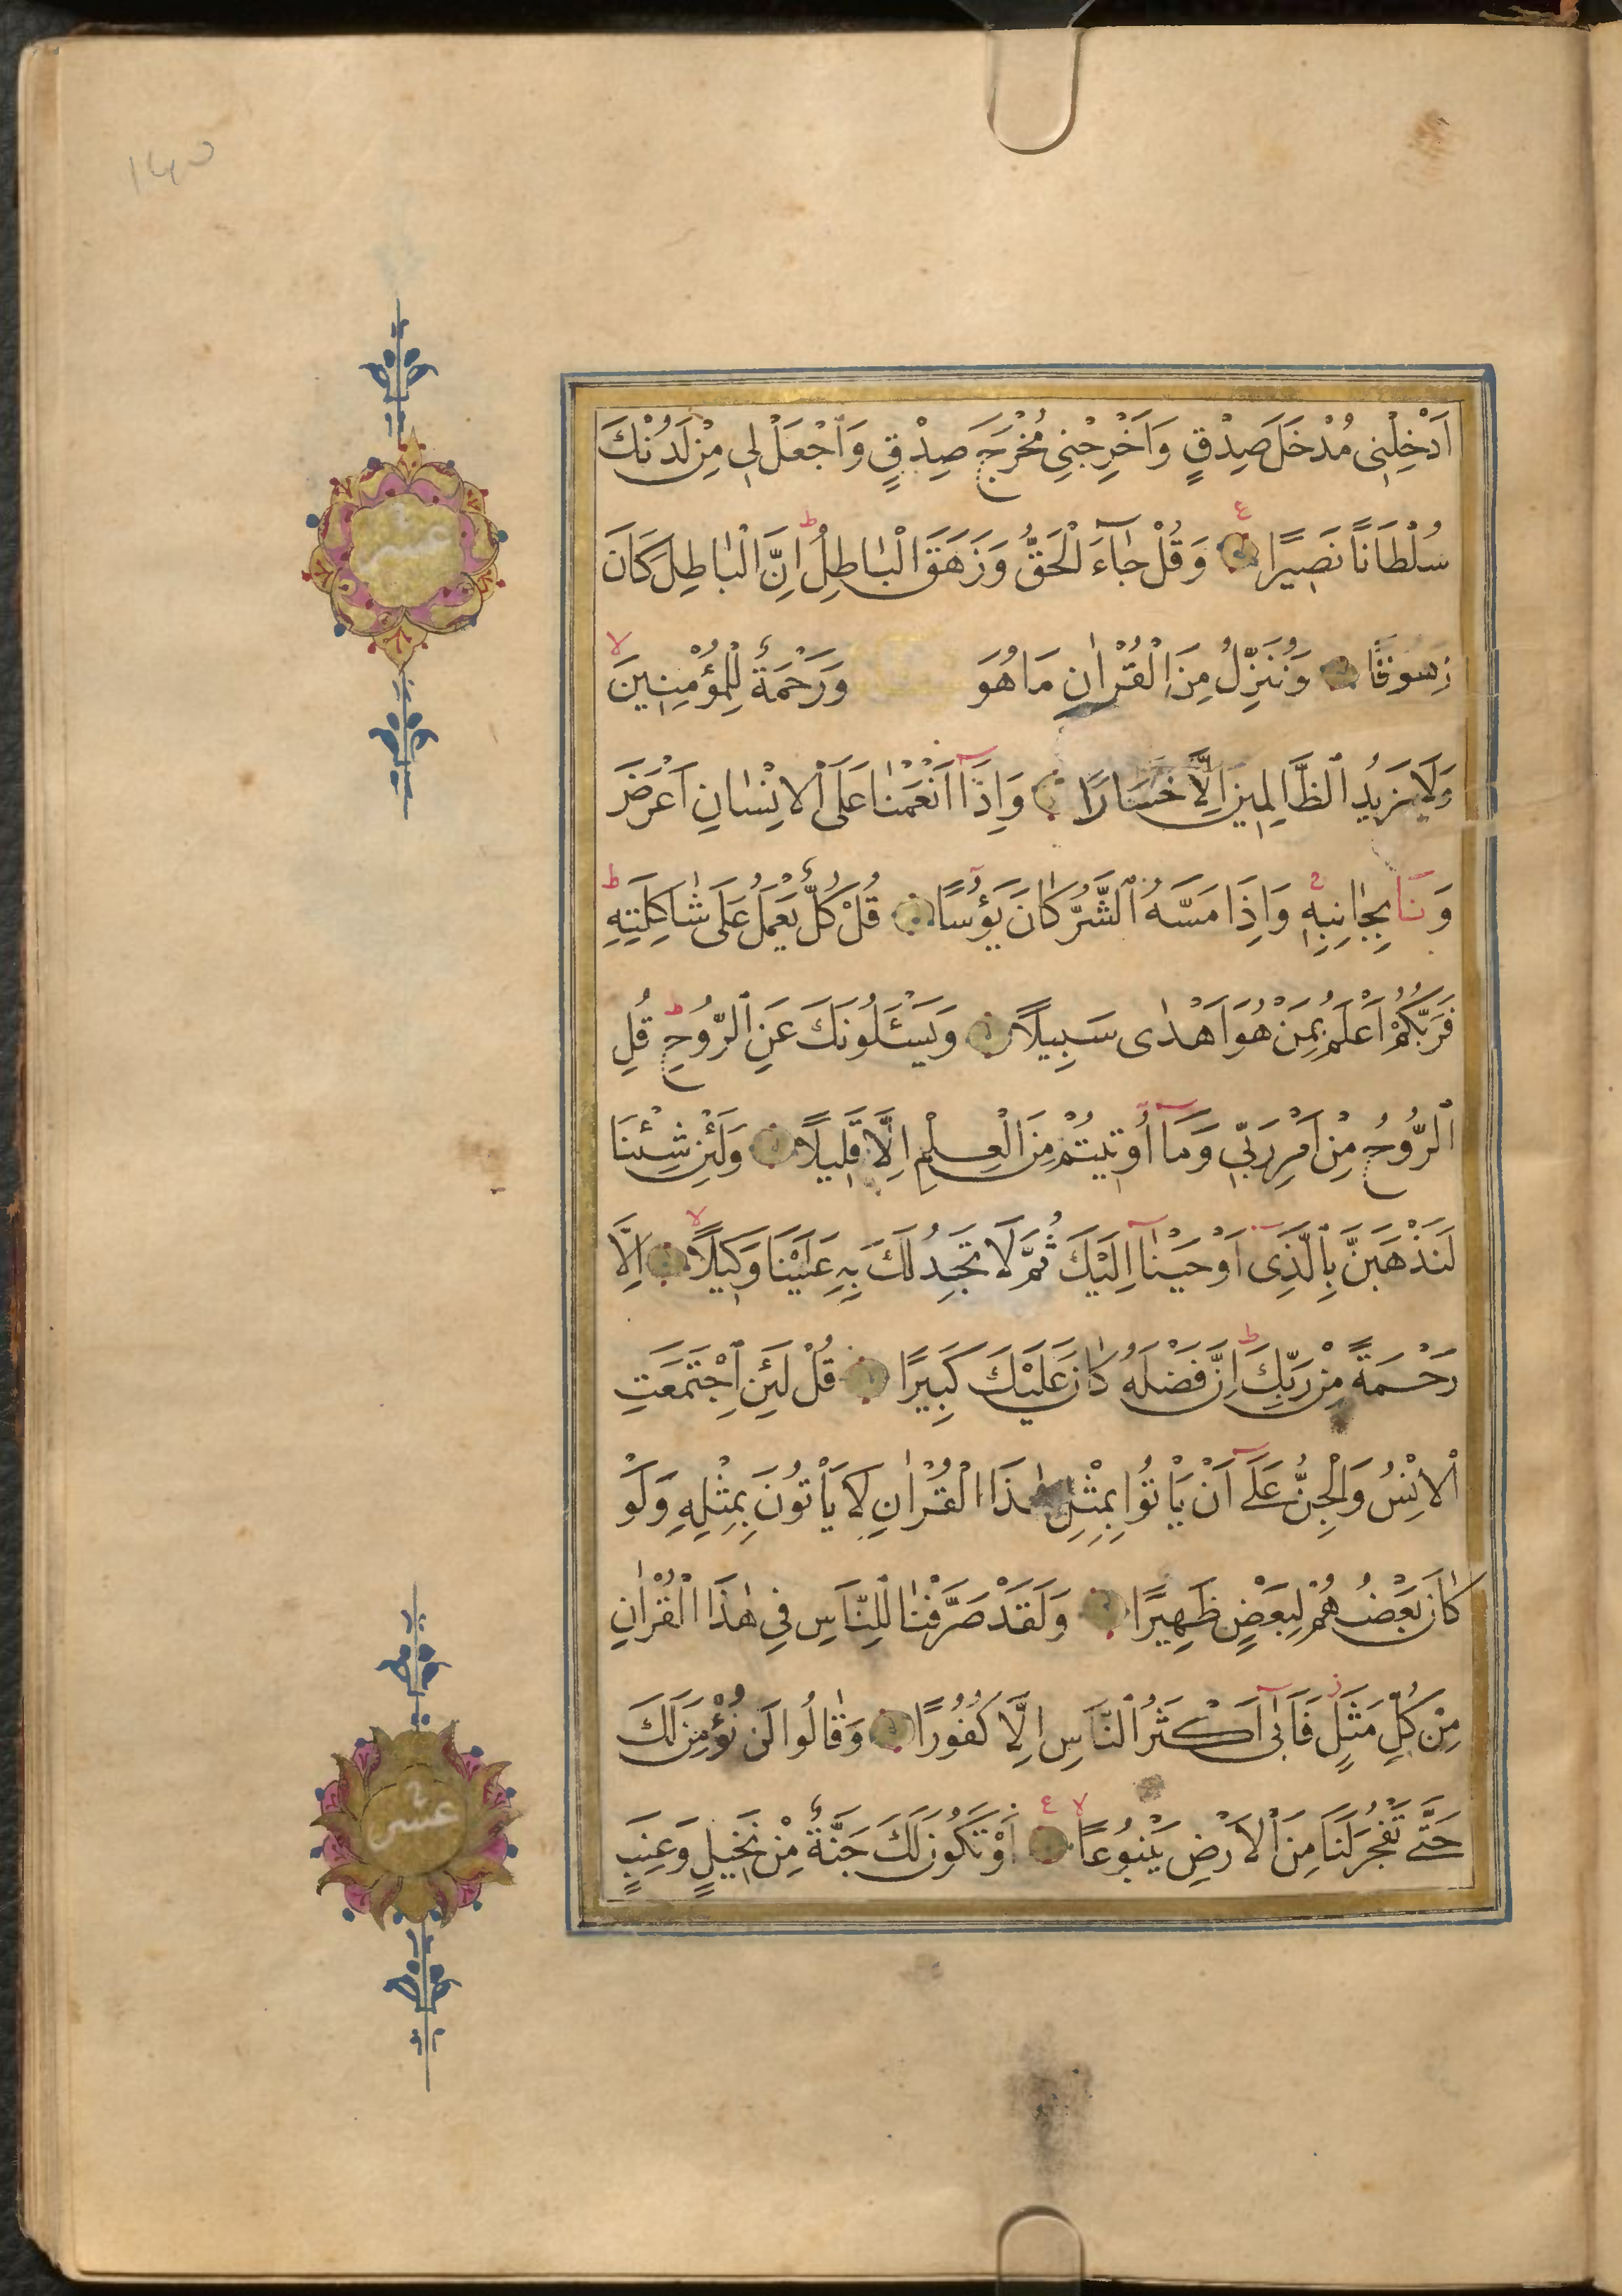 اَدْخِلْنِي مُدْخَلَ صِدْقٍ وَاَخْرِجْنِي مُخْرَجَ صِدْقٍ وَاجْعَلْ لِي مِنْ لَدُنْكَ
سُلْطَانًا نَصِيرًا ع وَقُلْ جَاءَ الْحَقُّ وَزَهَقَ الْبَاطِلُ ط اِنَّ الْبَاطِلَ كَانَ
زَهُوقًا وَنُنَزِّلُ مِنَ الْقُرْاٰنِ مَا هُوَ وَرَحْمَةٌ لِلْمُؤْمِنِينَ لا
وَلَا يَزِيدُ الظَّالِمِينَ اِلَّا خَسَارًا وَاِذَا اَنْعَمْنَا عَلَى الْاِنْسَانِ اَعْرَضَ
وَنَاٰ بِجَانِبِهِ وَاِذَا مَسَّهُ الشَّرُّ كَانَ يَؤُسًا قُلْ كُلٌّ يَعْمَلُ عَلَى شَاكِلَتِهِ ط
فَرَبُّكُمْ اَعْلَمُ بِمَنْ هُوَ اَهْدٰى سَبِيلًا وَيَسْئَلُونَكَ عَنِ الرُّوحِ ط قُلِ
الرُّوحُ مِنْ اَمْرِ رَبِّي وَمَا اُوتِيتُمْ مِنَ الْعِلْمِ اِلَّا قَلِيلًا وَلَئِنْ شِئْنَا
لَنَذْهَبَنَّ بِالَّذِي اَوْحَيْنَا اِلَيْكَ ثُمَّ لَا تَجِدُ لَكَ بِهِ عَلَيْنَا وَكِيلًا لا اِلَّا
رَحْمَةً مِنْ رَبِّكَ ط اِنَّ فَضْلَهُ كَانَ عَلَيْكَ كَبِيرًا قُلْ لَئِنِ اجْتَمَعَتِ
الْاِنْسُ وَالْجِنُّ عَلَى اَنْ يَأْتُوا بِمِثْلِ هٰذَا الْقُرْاٰنِ لَا يَأْتُونَ بِمِثْلِهِ وَلَوْ
كَانَ بَعْضُهُمْ لِبَعْضٍ ظَهِيرًا وَلَقَدْ صَرَّفْنَا لِلنَّاسِ فِي هٰذَا الْقُرْاٰنِ
مِنْ كُلِّ مَثَلٍ ز فَاَبٰى اَكْثَرُ النَّاسِ اِلَّا كُفُورًا وَقَالُوا لَنْ نُؤْمِنَ لَكَ
حَتَّى تَفْجُرَ لَنَا مِنَ الْاَرْضِ يَنْبُوعًا لا ع اَوْ تَكُونَ لَكَ جَنَّةٌ مِنْ نَخِيلٍ وَعِنَبٍ
عشر
عشر